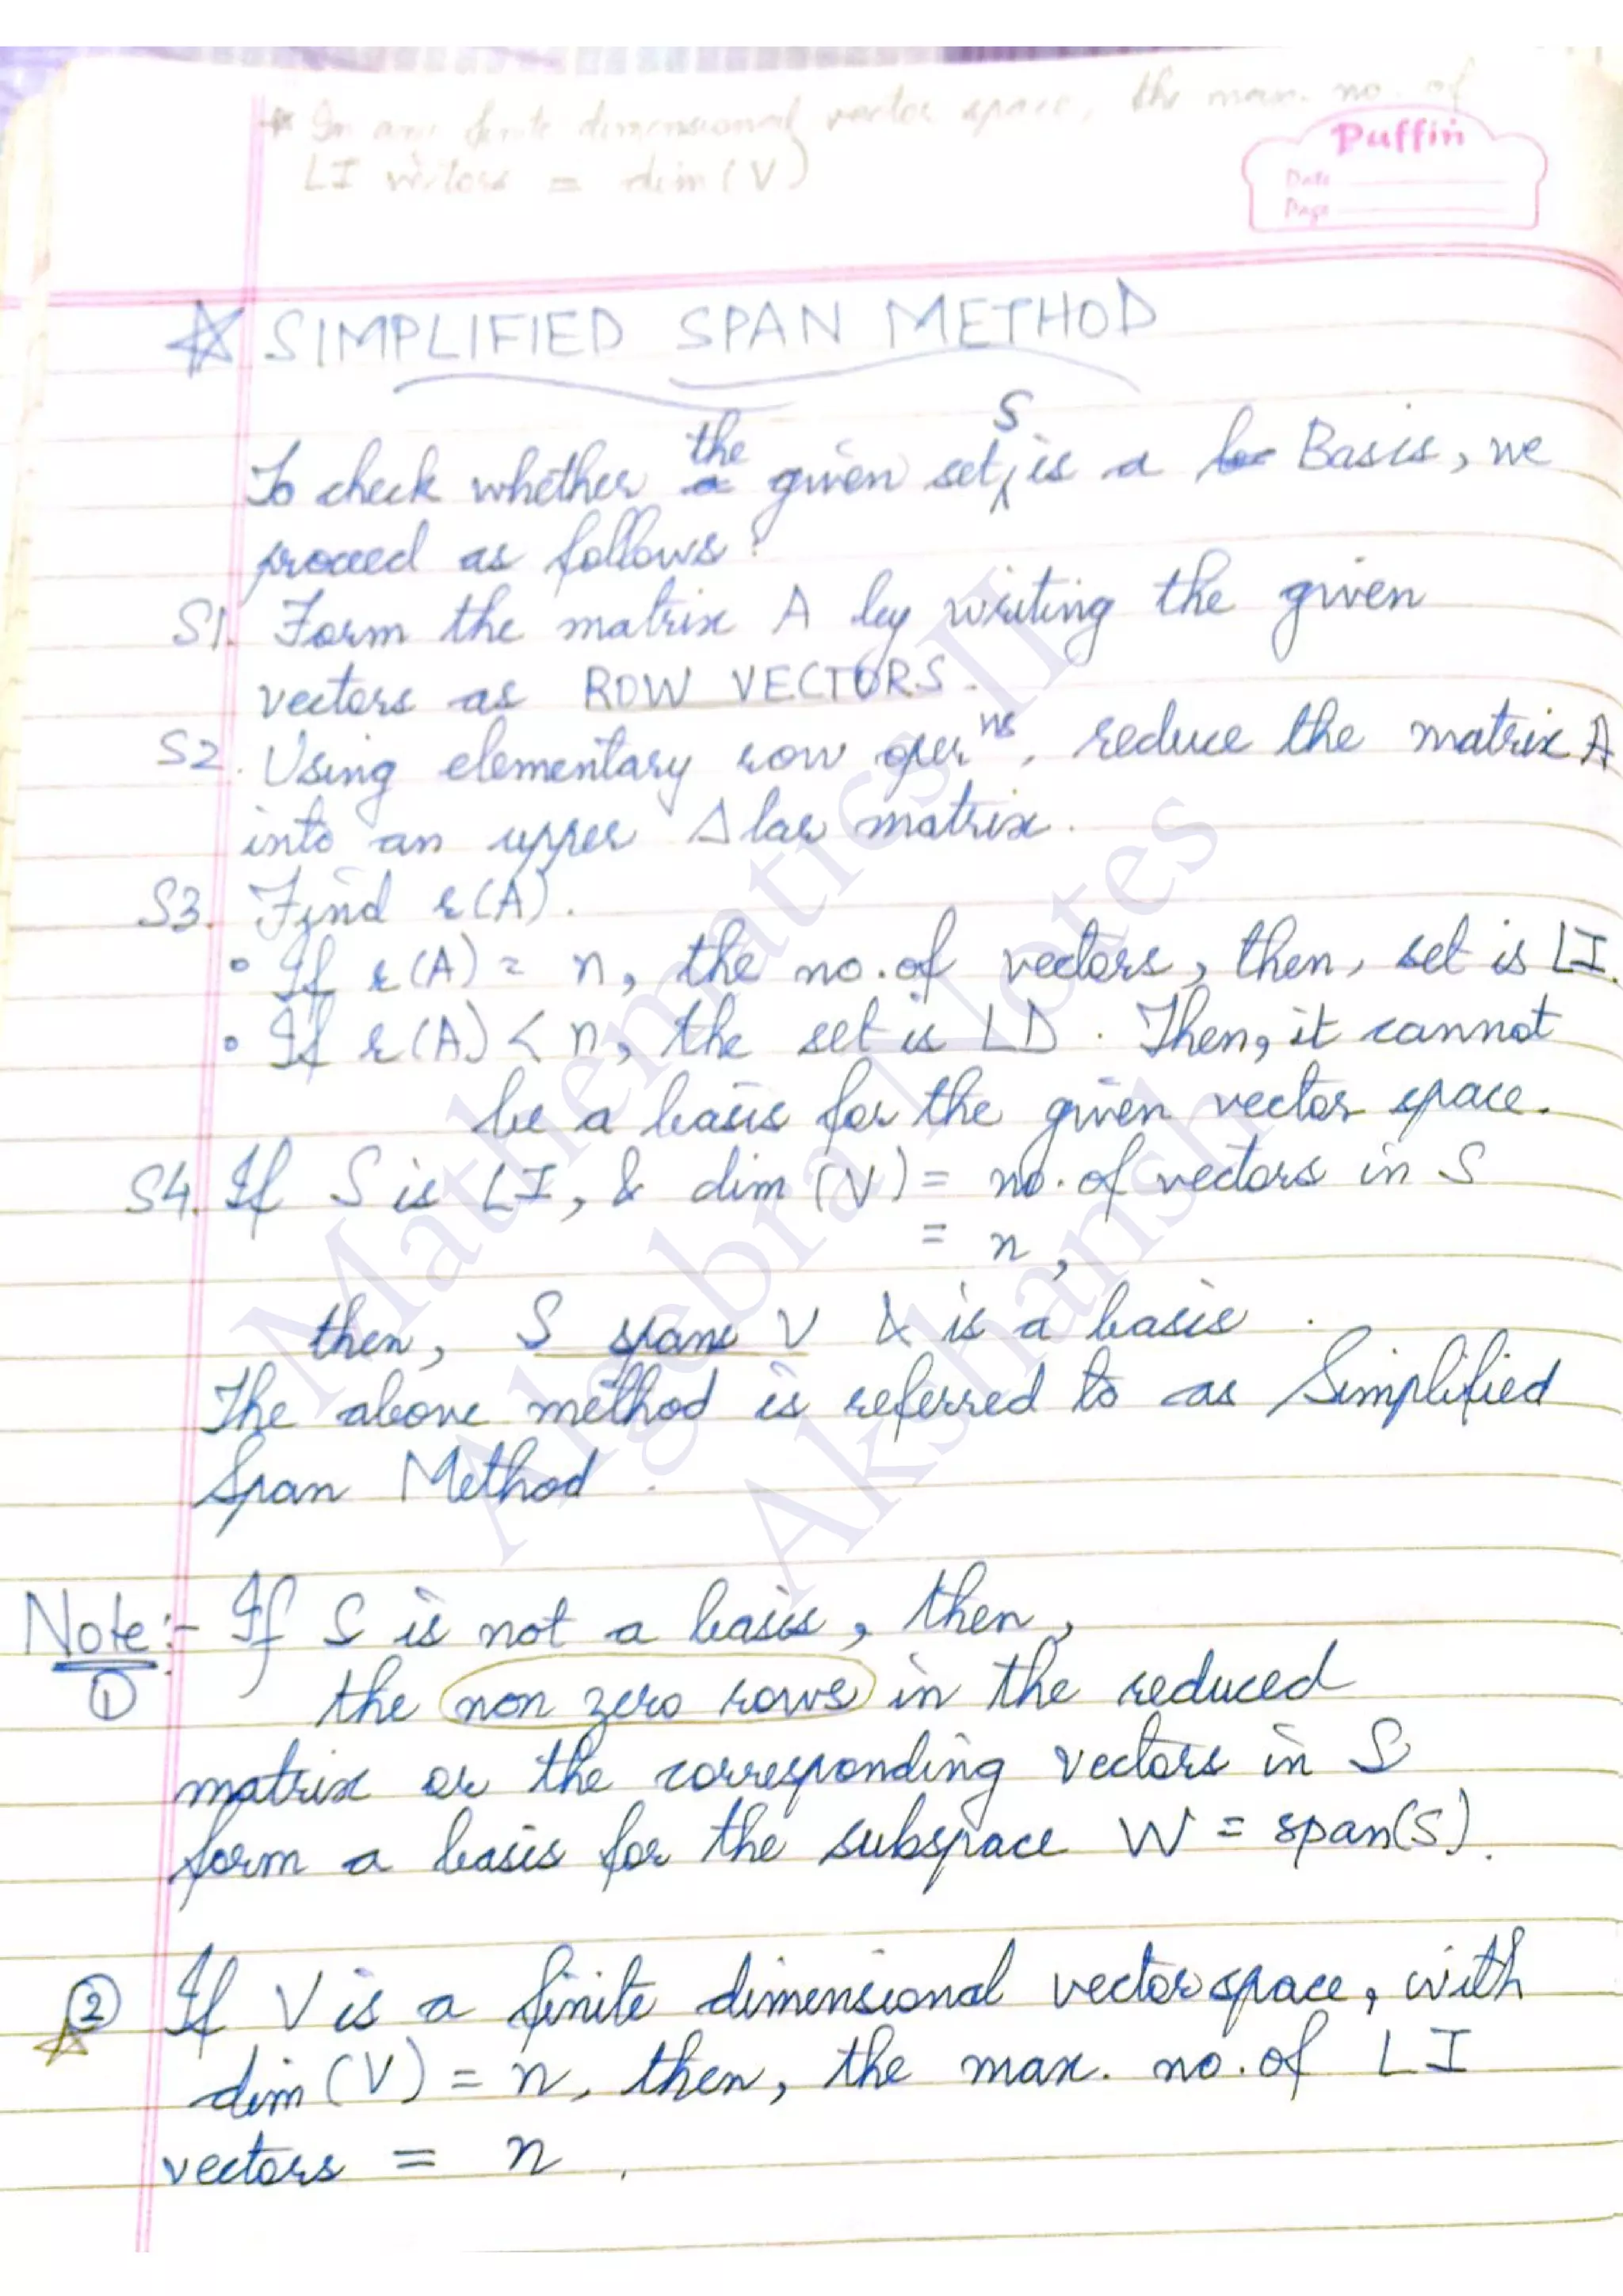 * In any finite dimensional vector space, the max. no. of
LI vectors = dim(V)
Puffin
Date
Page
☆ SIMPLIFIED SPAN METHOD
To check whether the given set S is a Basis, we
proceed as follows:
S1. Form the matrix A by writing the given
vectors as ROW VECTORS.
S2. Using elementary row oper^ns, reduce the matrix A
into an upper Δlar matrix.
S3. Find r(A).
• If r(A) = n, the no. of vectors, then, set is LI.
• If r(A) < n, the set is LD. Then, it cannot
be a basis for the given vector space.
S4. If S is LI, & dim (V) = no. of vectors in S
= n,
then, S spans V & is a basis.
The above method is referred to as Simplified
Span Method.
Note:- If S is not a basis, then,
① the non zero rows in the reduced
matrix or the corresponding vectors in S
form a basis for the subspace W = span(S).
② If V is a finite dimensional vector space, with
☆ dim (V) = n, then, the max. no. of LI
vectors = n.
Mathematics II
Algebra Notes
Akshansh